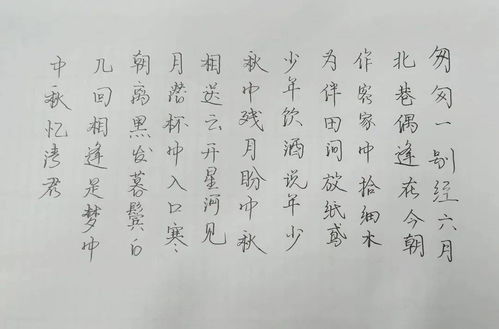 匆匆一别经六月
北巷偶逢在今朝
作客家中拾细木
为伴田间放纸鸢
少年饮酒说年少
秋中残月盼中秋
相送云开星河见
月落杯中入口寒
朝离黑发暮鬓白
几回相逢是梦中
中秋忆涛君